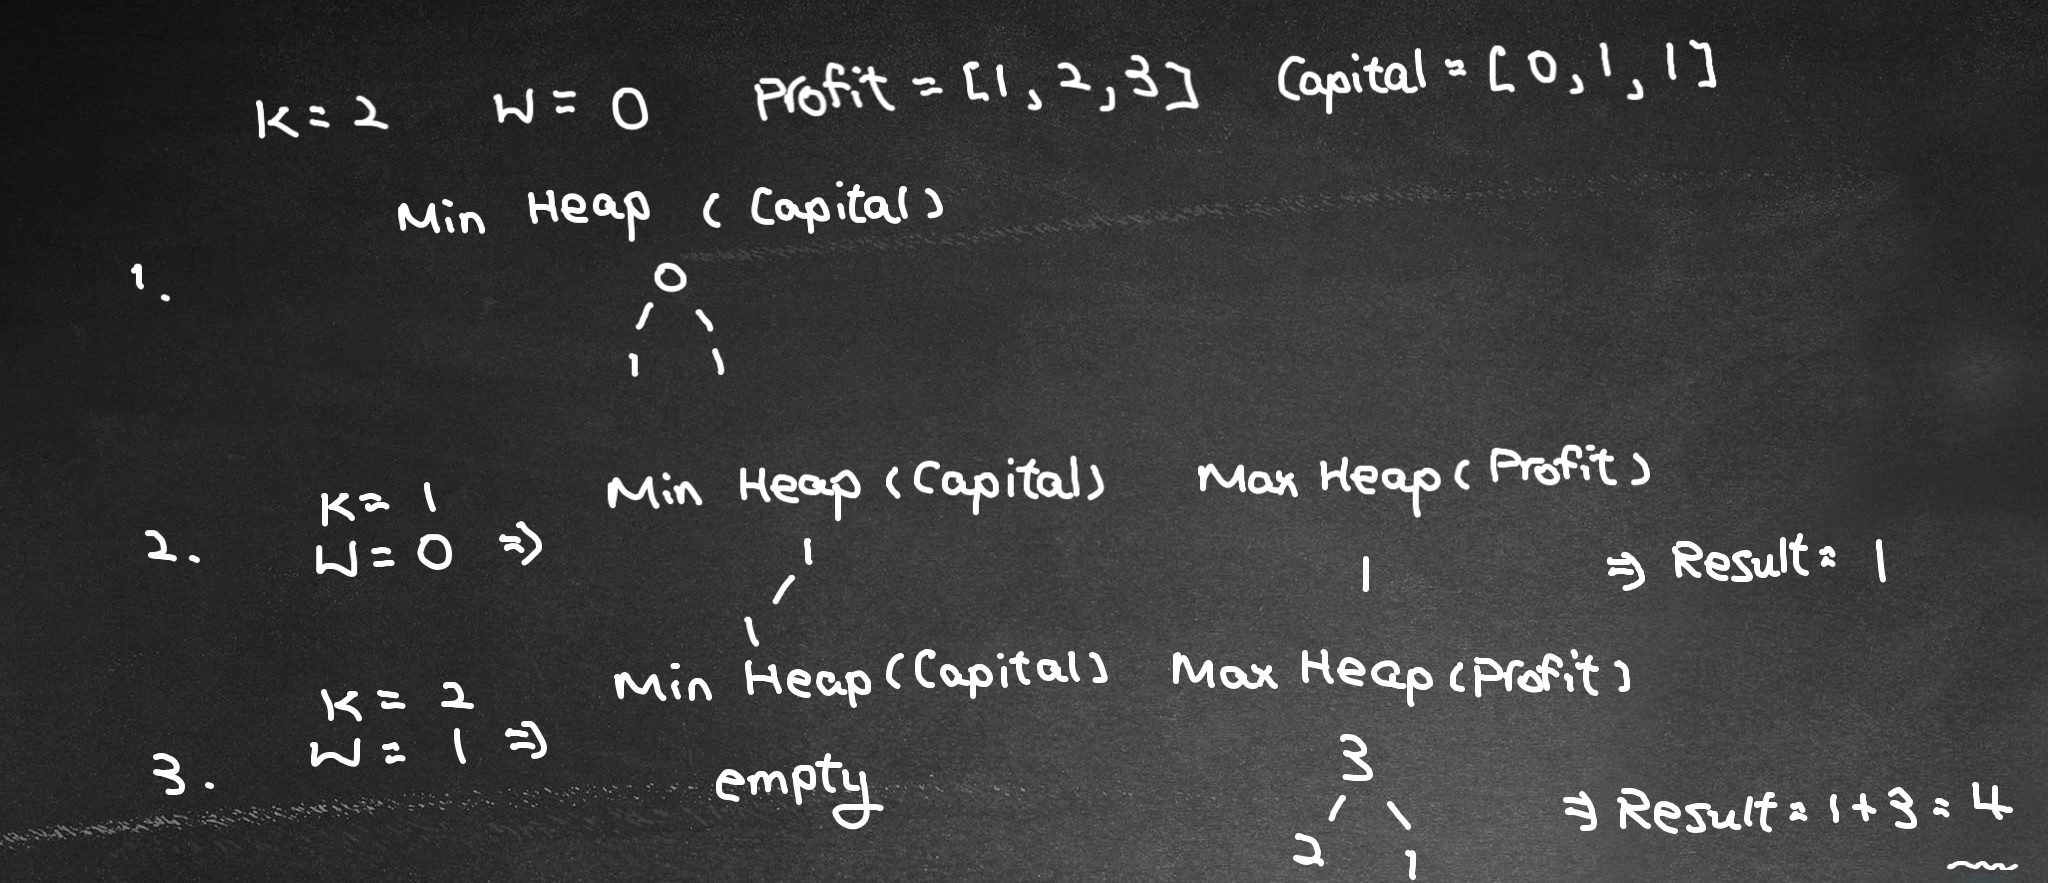 K=2 W=0 Profit = [1,2,3] Capital = [0,1,1]
Min Heap (Capital)
1.
0
1 1
Min Heap (Capital) Max Heap (Profit)
K=1
2. W=0 ⇒ 1 1 ⇒ Result = 1
1
Min Heap (Capital) Max Heap (Profit)
K=2
W=1 ⇒ 3
3. empty ⇒ Result = 1+3=4
2 1